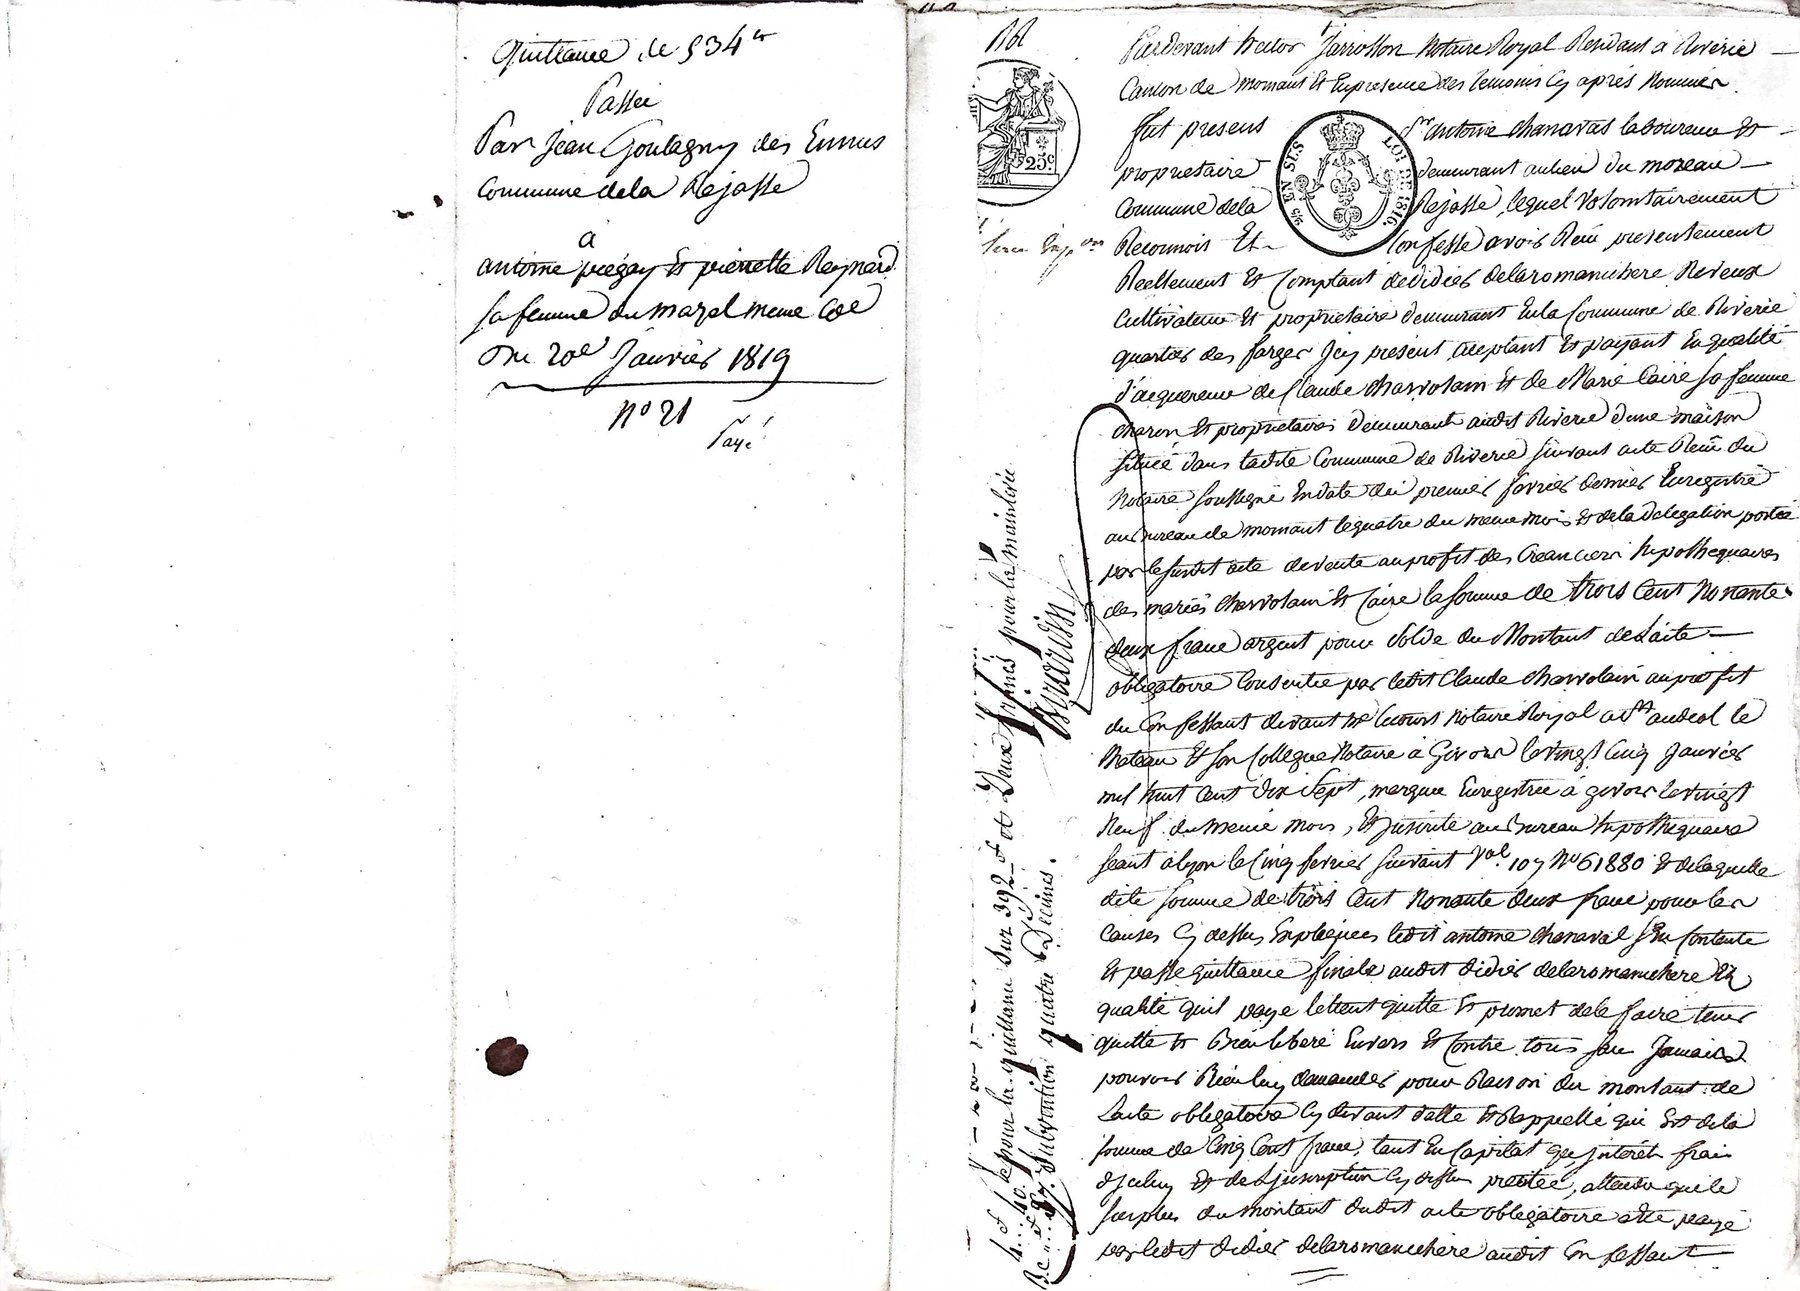 Quittance de 534 tt
Passée
Par Jean Goutagny des Ennus
Commune dela Rejasse
a
antoine piegay Et pierrette Reynard
sa femme du mazel meme Coe
Du 20e Janvier 1819
N° 21
Payé
25c
EN SUS
LOI DE 1816
Pardevant hector Jarrosson Notaire Royal Residant a Riverie
Canton de mornant Et Enpresence des temoins Cy aprés Nommés
fut present Sr antoine Chanavas laboureur Et
proprietaire demeurant aulieu du moreau
Commune dela Rejasse, lequel Volontairement
Reconnois Et Confesse avoir Reçu presentement
Reellement Et Comptant de didier delaromanchere Reveux
Cultivateur Et proprietaire demeurant Enla Commune de Riverie
quartier des farges Icy présent, aceptant Et payant En qualité
d'acquereur de Claude Charvolain Et de Marie Caire sa femme
charon Et proprietaires demeurant audit Riverie d'une maison
située dans ladite Commune de Riverie suivant acte Reçu du
Notaire soussigné Endate du premier fevrier dernier Enregistré
au Bureau de mornant lequatre du meme mois Et dela delegation portée
par lesusdit acte devente au profit des Creanciers hypothequaires
des mariés Charvolain Et Caire la somme de trois Cent Nonante
deux franc argent pour Solde du Montant de Lacte
obligatoire Consentie par ledit Claude Charvolain au profit
du Confessant devant Me Notaire Royal a St andeol le
Chateau Et son Collegue Notaire à Givors levingt Cinq Janvier
mil huit Cent dix Sept, Enregistrée à givors levingt
Neuf du meme mois, Et Inscrite au Bureau hypothequaire
seant a lyon le Cinq fevrier suivant Vol. 107 No 61880 Et delaquelle
dite somme de trois Cent Nonante deux franc pour les
Causes Cy dessus Expliquées ledit antoine Chanaval s'En Contente
Et passe quittance finale audit didier delaromanchere En
qualité quil paye letient quitte Et promet dele faire tenir
quitte Et Bien liberé Envers Et Contre tous sans Jamais
pouvoir Rien luy demander pour Raison du montant de
Lacte obligatoire Cy devant datté Et Rappellé qui Est dela
somme de Cinq Cent franc, tant En Capital que, interét frais
Et de Linscription Cy dessus prettée, attendu que le
surplus du montant dudit acte obligatoire a Eté payé
par ledit didier delaromanchere audit Confessant
pour la quittance sur 392 f et Deux francs pour la mainlevée
Subvention quatre Décimes.
Girardin